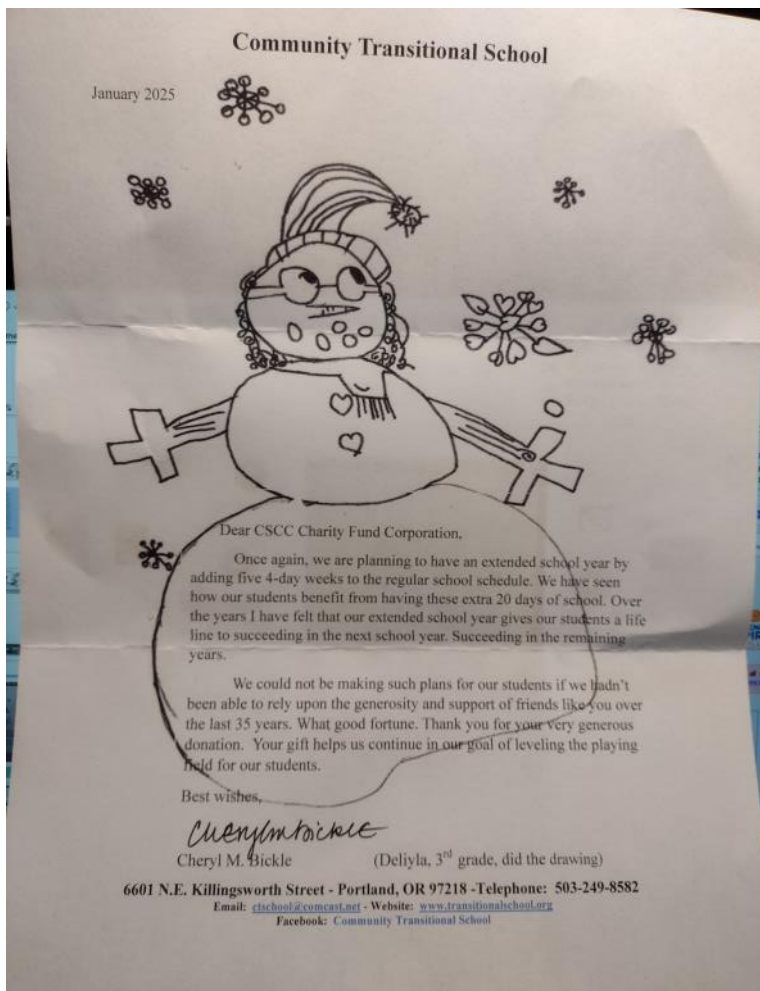 Community Transitional School
January 2025
Dear CSCC Charity Fund Corporation,
Once again, we are planning to have an extended school year by
adding five 4-day weeks to the regular school schedule. We have seen
how our students benefit from having these extra 20 days of school. Over
the years I have felt that our extended school year gives our students a life
line to succeeding in the next school year. Succeeding in the remaining
years.
We could not be making such plans for our students if we hadn't
been able to rely upon the generosity and support of friends like you over
the last 35 years. What good fortune. Thank you for your very generous
donation. Your gift helps us continue in our goal of leveling the playing
field for our students.
Best wishes,
Cheryl M Bickle
Cheryl M. Bickle (Deliyla, 3rd grade, did the drawing)
6601 N.E. Killingsworth Street - Portland, OR 97218 -Telephone: 503-249-8582
Email: ctschool@comcast.net - Website: www.transitionalschool.org
Facebook: Community Transitional School